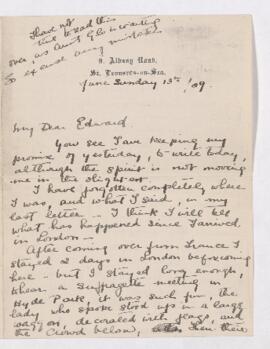 I have not
time to read this
over, as Aunt Glo is waiting
So excuse any mistakes
9, Albany Road,
St. Leonards-on-Sea,
June Sunday 13th '09
My Dear Edward
You see I are keeping my
promise of yesterday, to write today,
although the spirit is not moving
me in the slightest.
I have forgotten completely where
I was, and what I said, in my
last letter — I think I will tell
what has happened since I arrived
in London —
After coming over from France I
stayed 2 days in London before coming
here — but I stayed long enough,
to hear a suffragette meeting in
Hyde Park, it was such fun, the
lady who spoke stood up in a large
waggon, decorated with flags, and
the Crowd below, then there